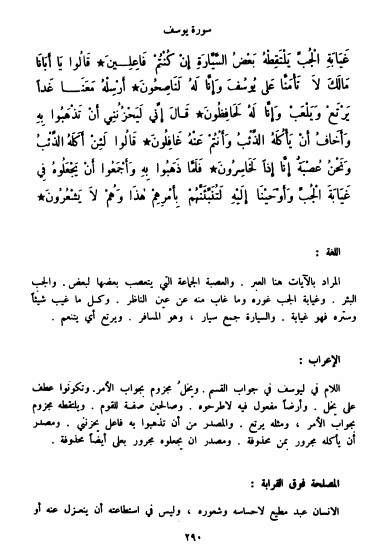 سورة يوسف
غَيَابَةِ الْجُبِّ يَلْتَقِطْهُ بَعْضُ السَّيَّارَةِ إِنْ كُنْتُمْ فَاعِلِينَ★ قَالُوا يَا أَبَانَا
مَالَكَ لَا تَأْمَنَّا عَلَى يُوسُفَ وَإِنَّا لَهُ لَنَاصِحُونَ★ أَرْسِلْهُ مَعَنَا غَداً
يَرْتَعْ وَيَلْعَبْ وَإِنَّا لَهُ لَحَافِظُونَ★ قَالَ إِنِّي لَيَحْزُنُنِي أَنْ تَذْهَبُوا بِهِ
وَأَخَافُ أَنْ يَأْكُلَهُ الذِّئْبُ وَأَنْتُمْ عَنْهُ غَافِلُونَ★ قَالُوا لَئِنْ أَكَلَهُ الذِّئْبُ
وَنَحْنُ عُصْبَةٌ إِنَّا إِذاً لَخَاسِرُونَ★ فَلَمَّا ذَهَبُوا بِهِ وَأَجْمَعُوا أَنْ يَجْعَلُوهُ فِي
غَيَابَةِ الْجُبِّ وَأَوْحَيْنَا إِلَيْهِ لَتُنَبِّئَنَّهُمْ بِأَمْرِهِمْ هٰذَا وَهُمْ لَا يَشْعُرُونَ★
اللغة :
المراد بالآيات هنا العبر . والعصبة الجماعة التي يتعصب بعضها لبعض . والجب
البئر . وغيابة الجب غوره وما غاب منه عن عين الناظر . وكل ما غيب شيئاً
وستره فهو غيابة . والسيارة جمع سيار ، وهو المسافر . ويرتع أي يتنعم .
الإعراب :
اللام في ليوسف في جواب القسم . ويخلُ مجزوم بجواب الأمر . وتكونوا عطف
على يخل . وأرضاً مفعول فيه لاطرحوه . وصالحين صفة للقوم . ويلتقطه مجزوم
بجواب الأمر ، ومثله يرتع . والمصدر من أن تذهبوا به فاعل يحزنني . ومصدر
أن يأكله مجرور بمن محذوفة . ومصدر ان يجعلوه مجرور بعلى أيضاً محذوفة .
المصلحة فوق القرابة :
الانسان عبد مطيع لاحساسه وشعوره ، وليس في استطاعته أن ينعزل عنه أو
٢٩٠